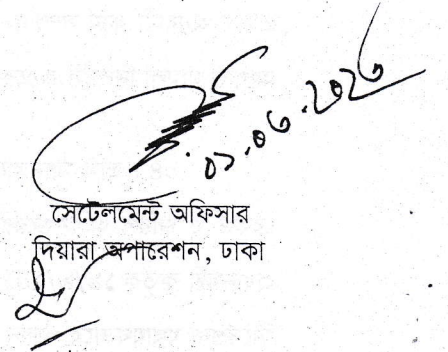 ০১.০৬.২০২৬
সেটেলমেন্ট অফিসার
দিয়ারা অপারেশন, ঢাকা